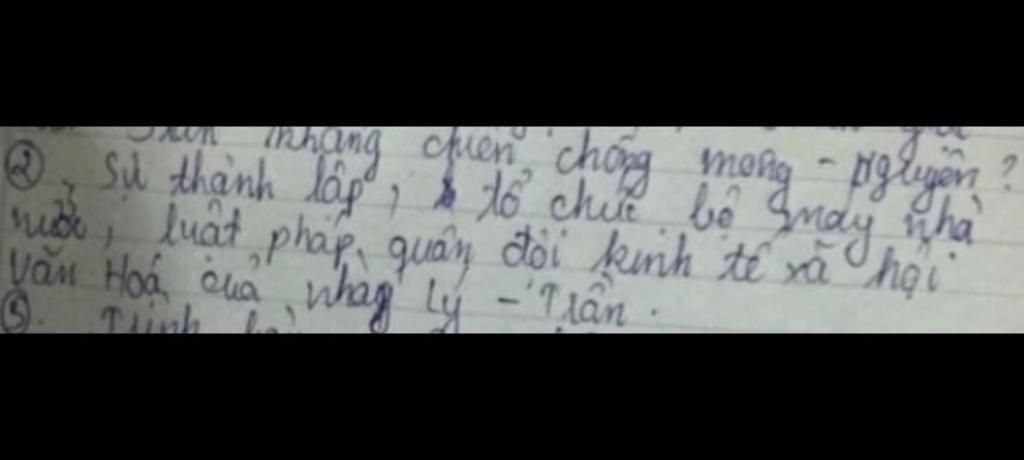 kháng chiến chống mông - nguyên?
②, Sự thành lập, tổ chức bộ máy nhà
nước, luật pháp, quân đội kinh tế xã hội
văn Hoá của nhà Lý - Trần.
⑤. Trình